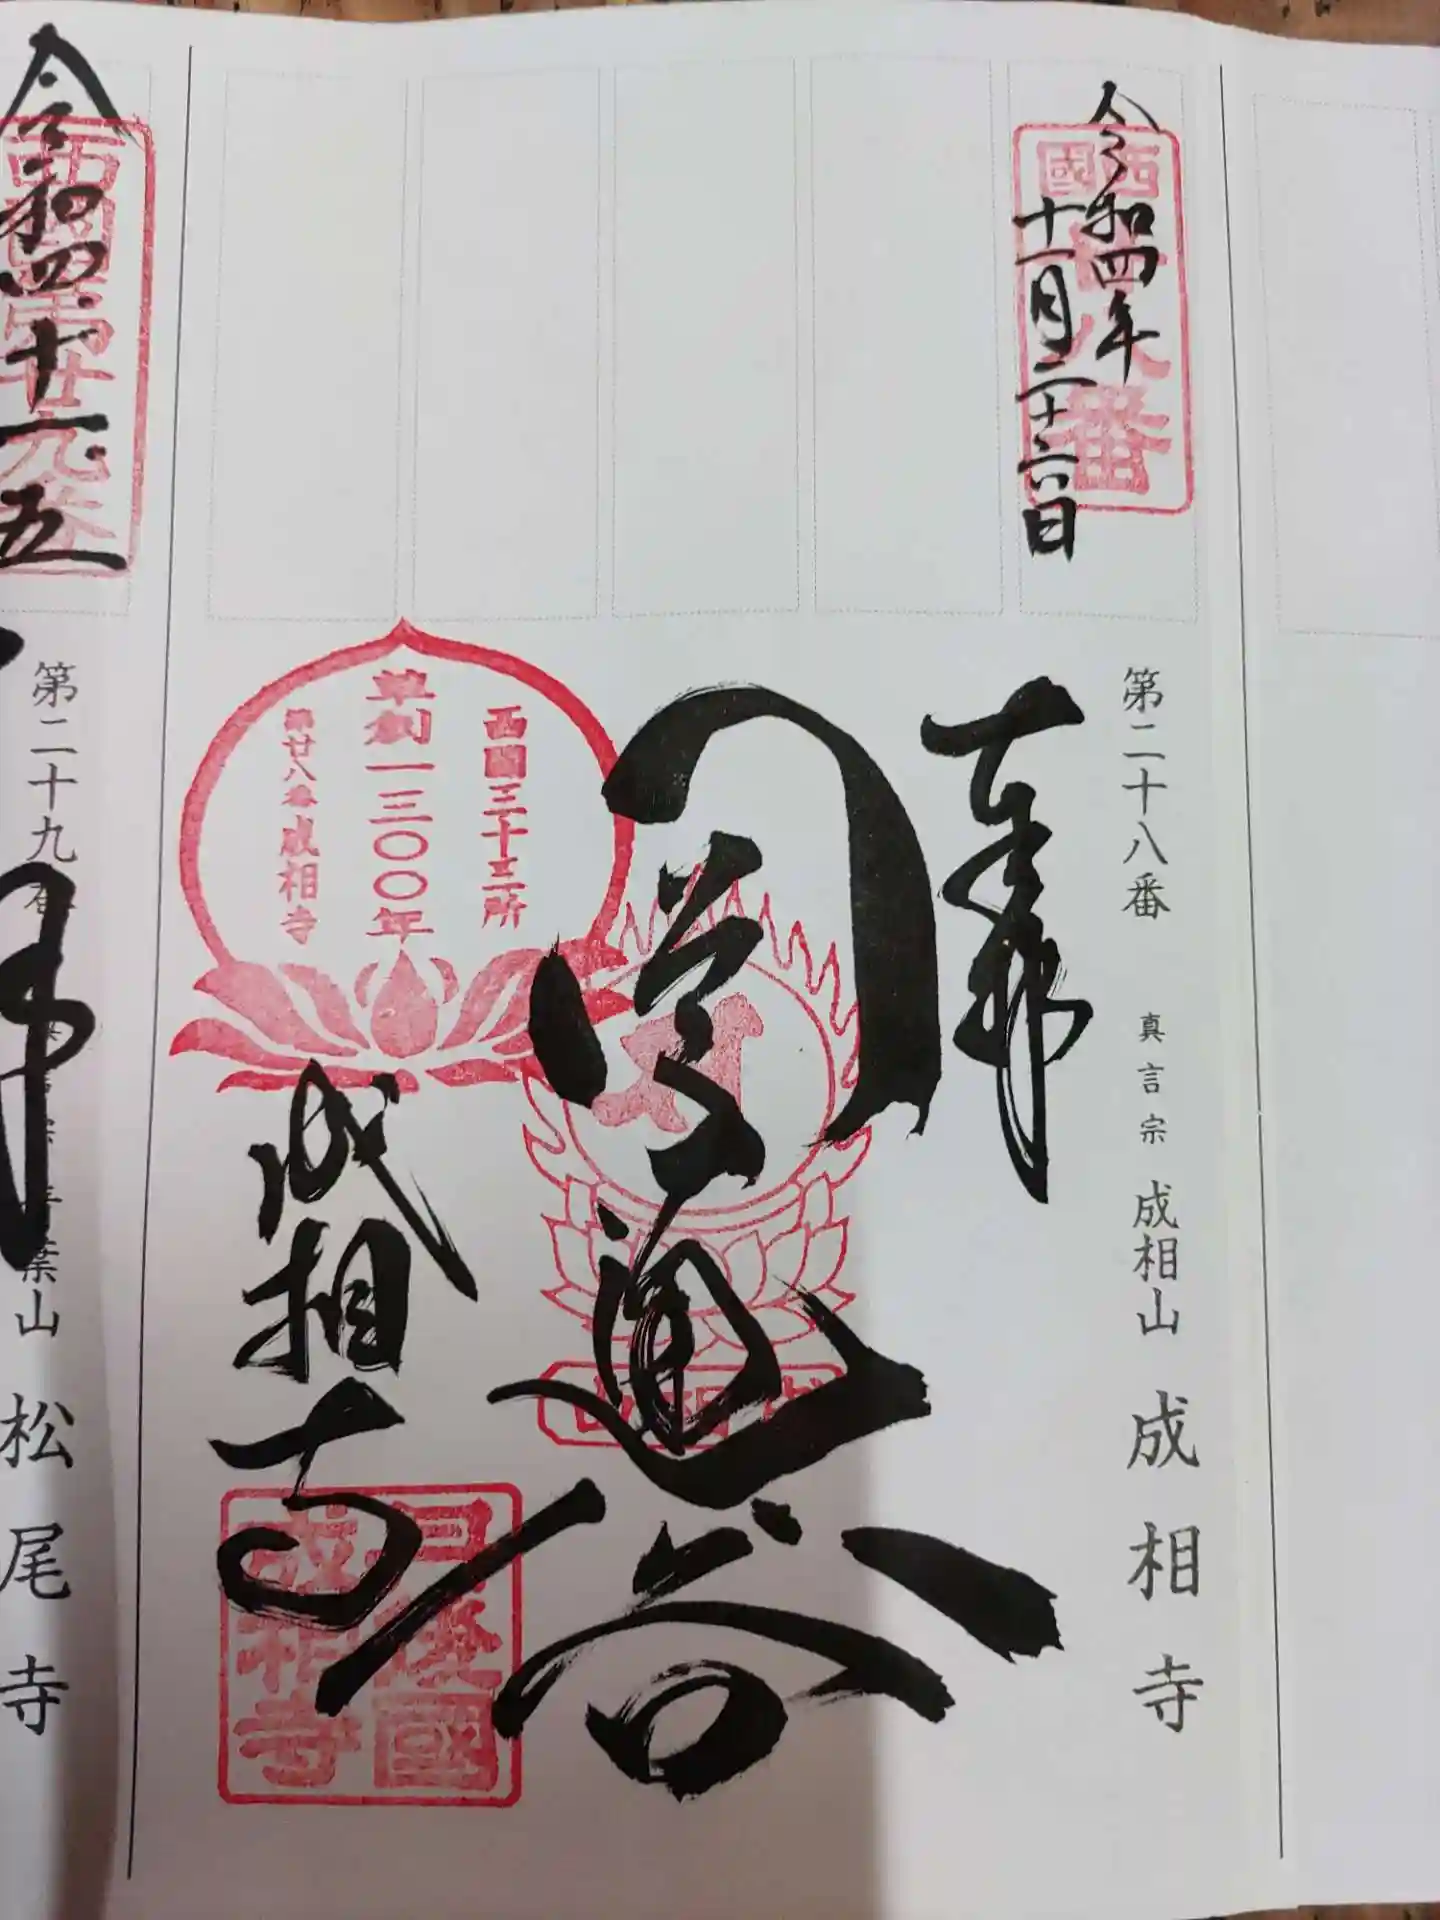 令和四年
十一月二十六日
西國廿八番
第二十八番 真言宗 成相山 成相寺
奉拝
円通
西國三十三所
草創一三〇〇年
第廿八番 成相寺
成相寺
丹後國
成相寺
令和四、十一、五
西國第廿九番
第二十九番
葉山 松尾寺